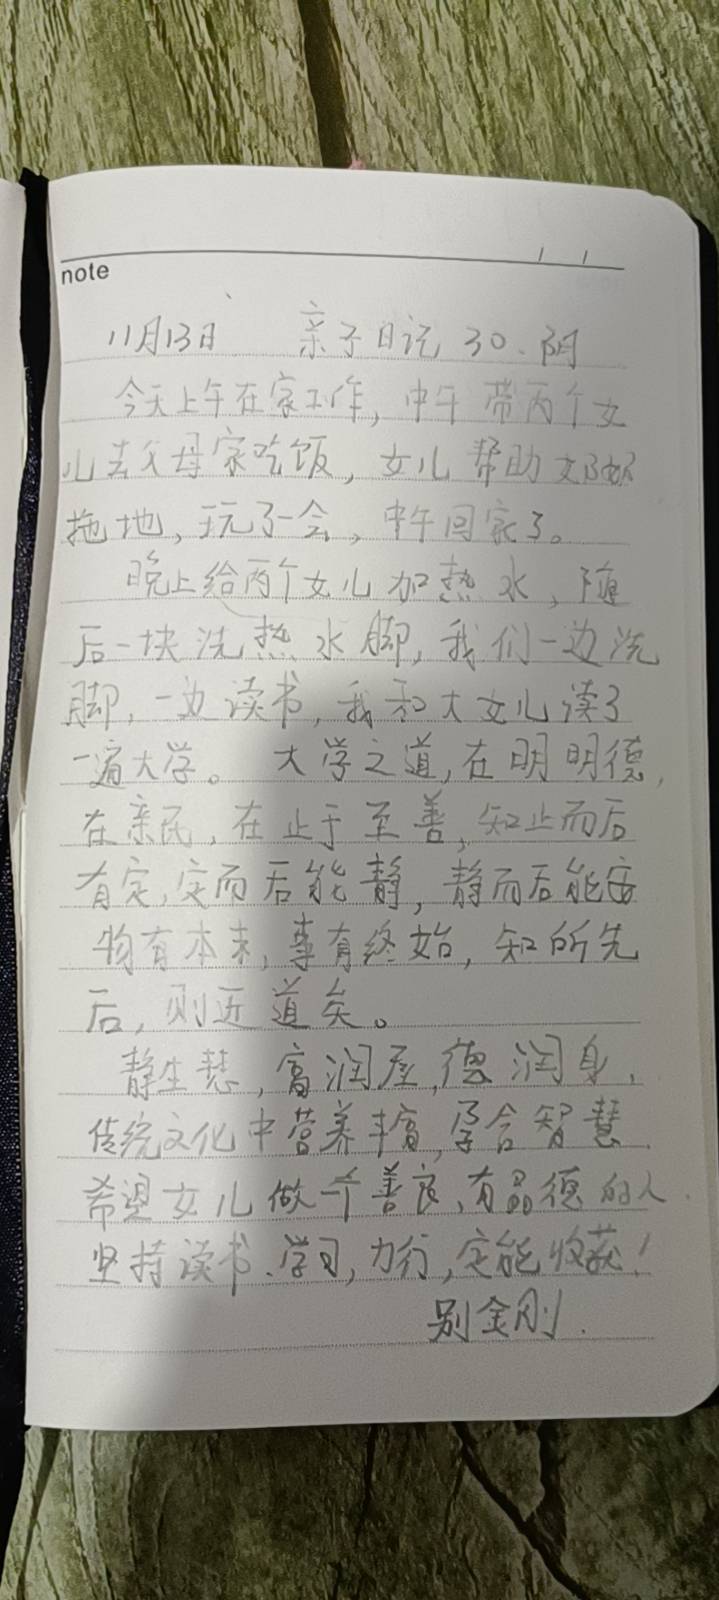 note
11月13日 亲子日记 30. 阴
今天上午在家工作, 中午带两个女
儿去父母家吃饭, 女儿帮助
拖地, 玩了一会, 中午回家了。
晚上给两个女儿加热水, 随
后一块洗热水脚, 我们一边洗
脚, 一边读书, 我和大女儿读了
一遍大学。 大学之道, 在明明德,
在亲民, 在止于至善, 知止而后
有定, 定而后能静, 静而后能安
物有本末, 事有终始, 知所先
后, 则近道矣。
静生慧, 富润屋, 德润身,
传统文化中营养丰富, 孕含智慧.
希望女儿做个善良、有品德的人.
坚持读书、学习, 力行, 定能收获!
别金刚.